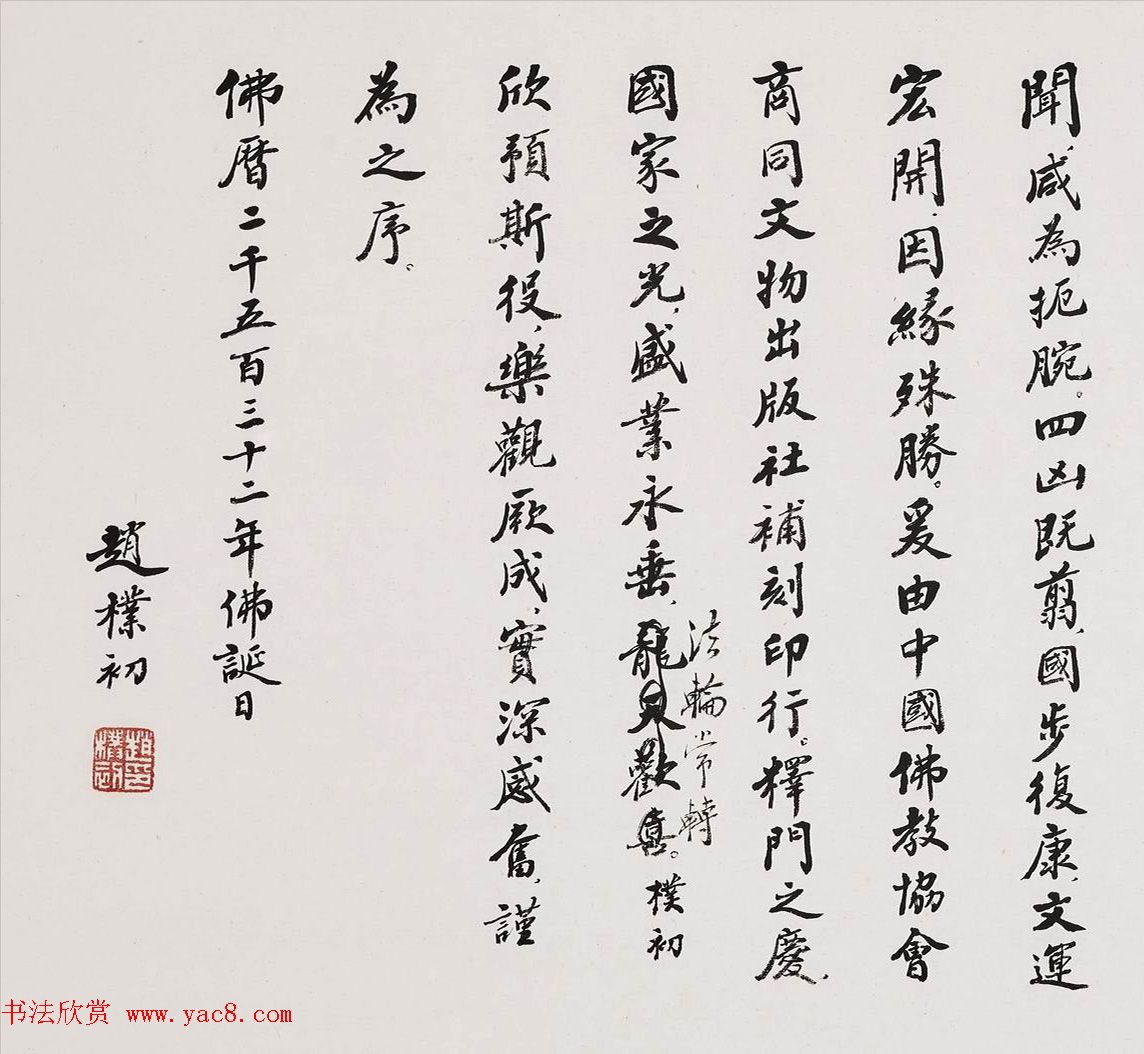 聞，咸為扼腕。四凶既翦，國步復康，文運
宏開，因緣殊勝。爰由中國佛教協會
商同文物出版社補刻印行。釋門之慶，
法輪常轉
國家之光，盛業永垂，龍天歡喜。樸初
欣預斯役，樂觀厥成，實深感奮，謹
為之序。
佛曆二千五百三十二年佛誕日
趙樸初
書法欣赏 www.yac8.com